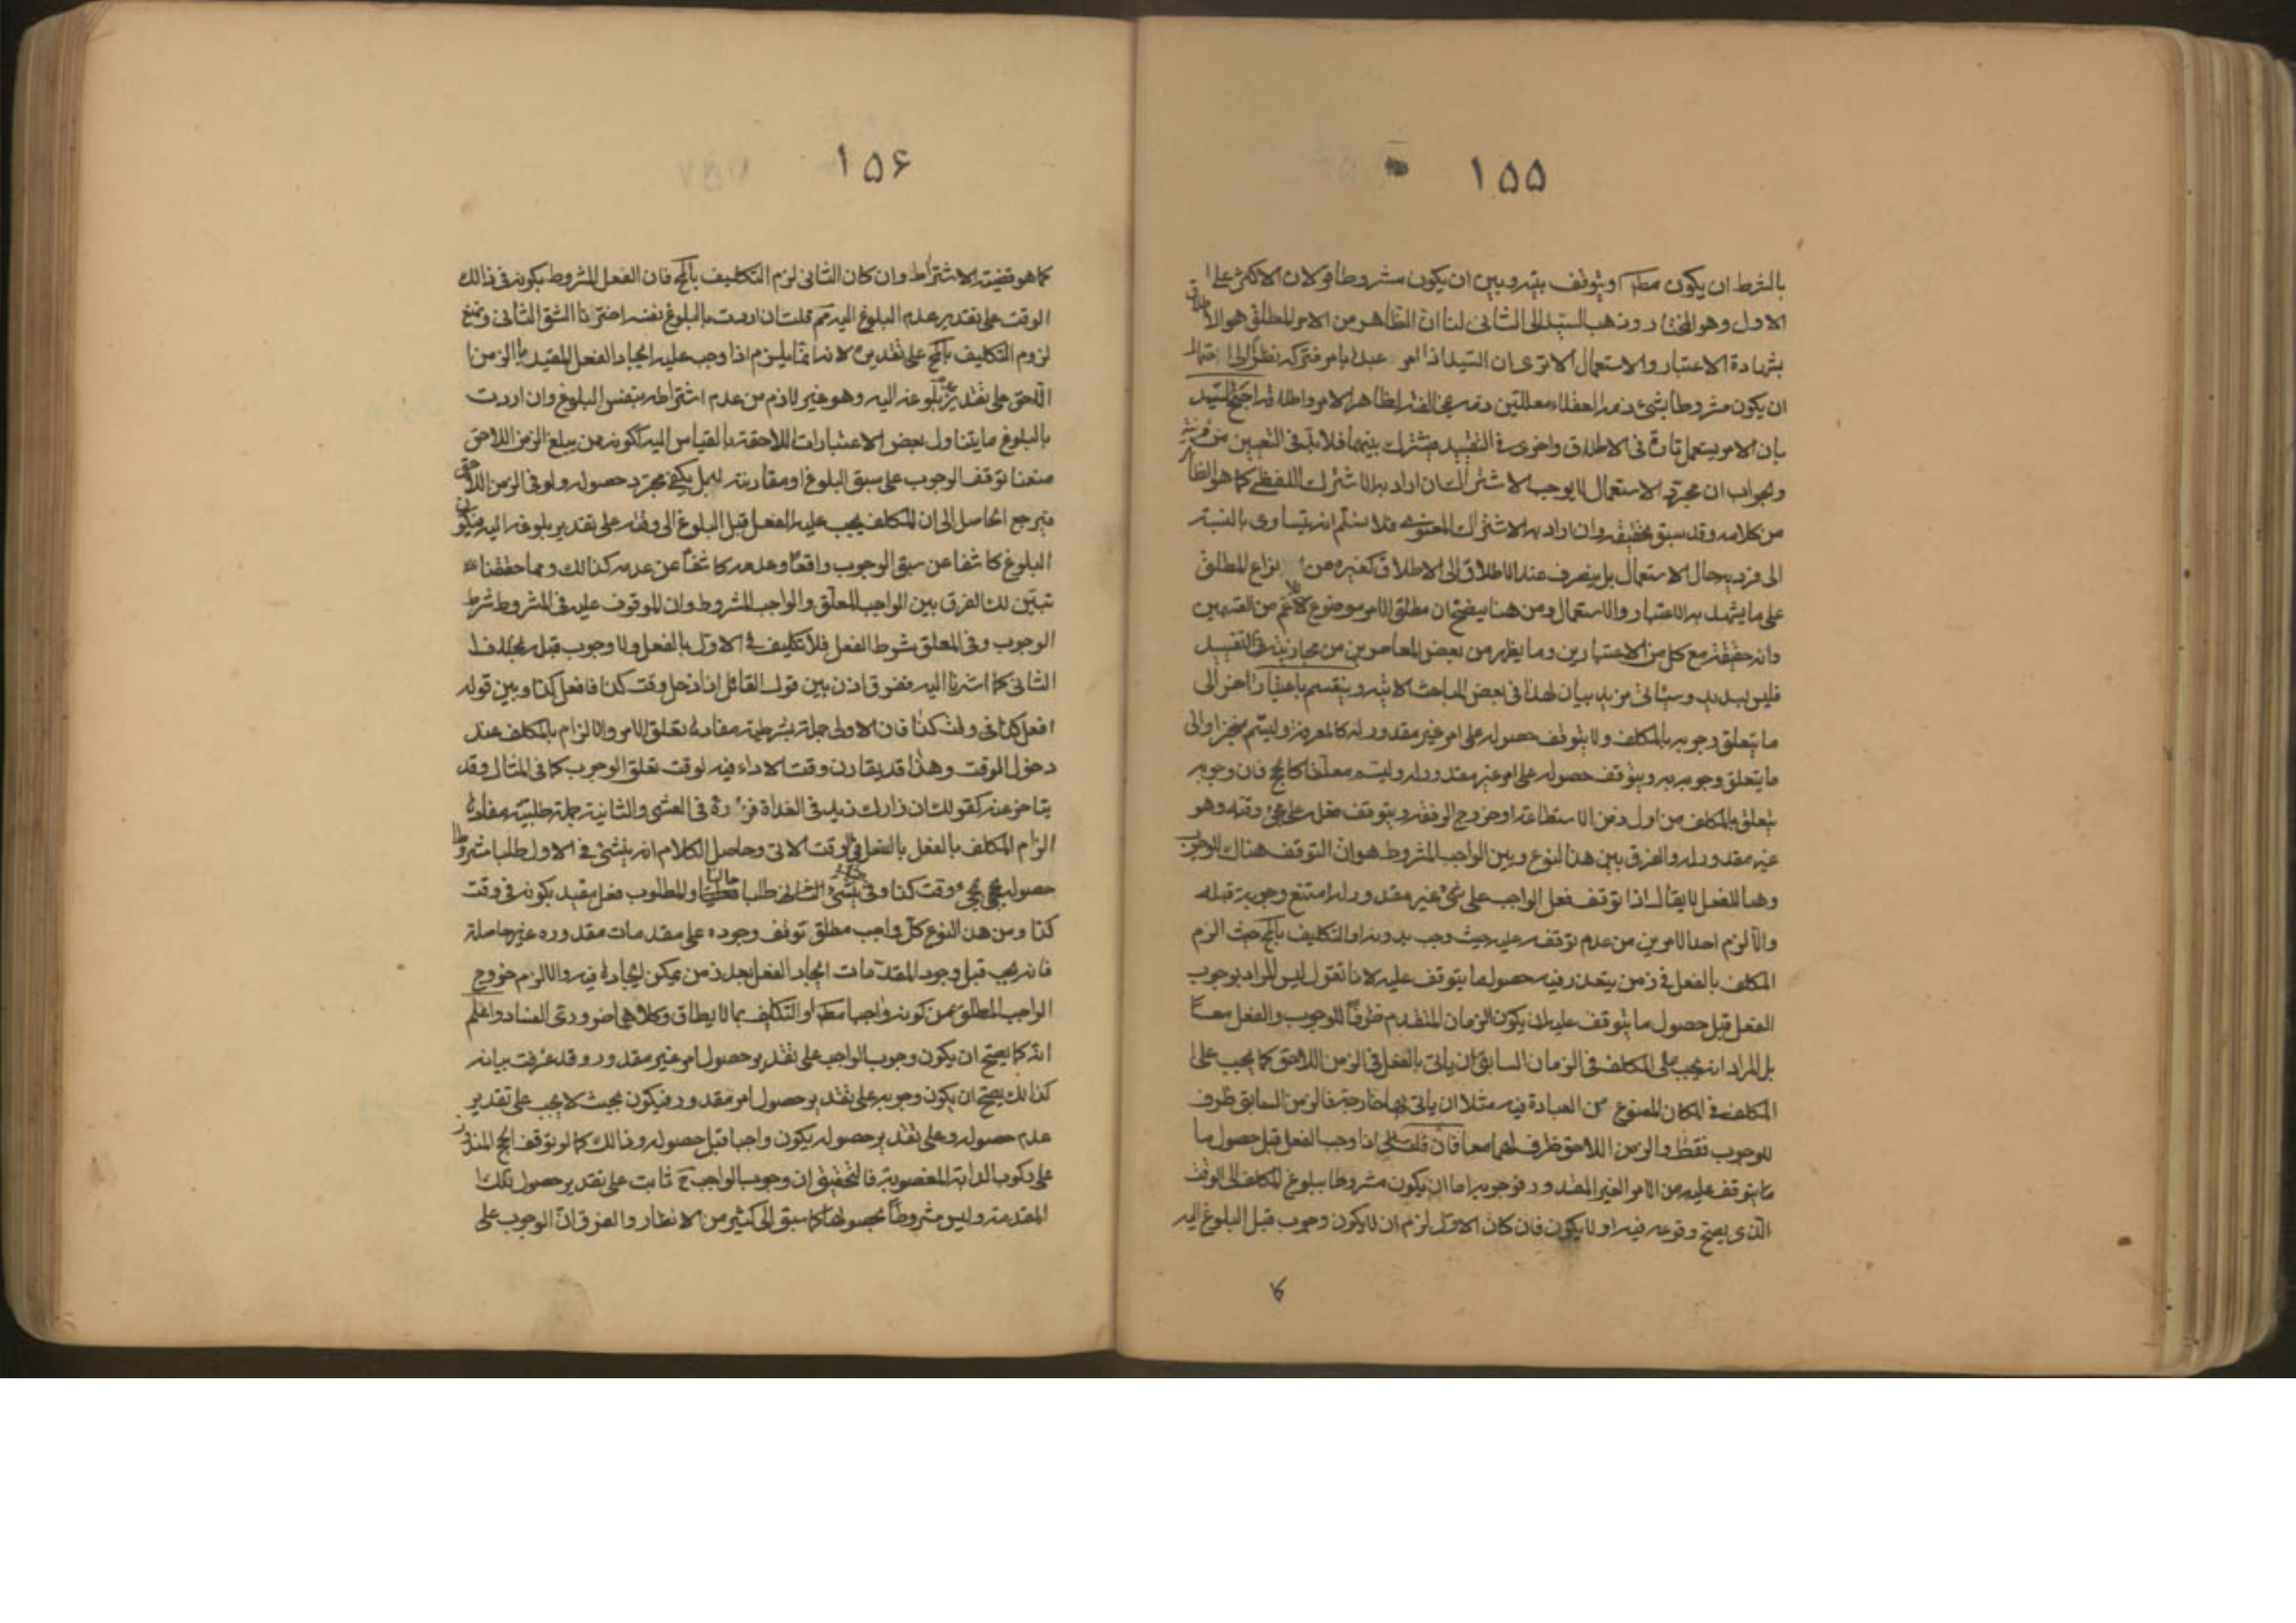 ١۵۵
بالشرط ان يكون مطلقا ويتوقف بينه وبين ان يكون مشروطا قولان الاكثر على
الاول وهو المختار وذهب السيد الى الثانى لنا ان الظاهر من الامر المطلق هو الاطلاق
بشهادة الاعتبار والاستعمال الا ترى ان السيد اذا امر عبده بامر فتركه نظرا الى احتمال
ان يكون مشروطا بشئ ذمه العقلاء معللين ذمه بمخالفته لظاهر الامر واطلاقه احتج السيد
بان الامر يستعمل تارة فى الاطلاق واخرى فى التقييد فيشترك بينهما فلا بد فى التعيين من قرينة
والجواب ان مجرد الاستعمال لا يوجب الاشتراك ان اراد به الاشتراك اللفظى كما هو الظاهر
من كلامه وقد سبق تحقيقه وان اراد به الاشتراك المعنوى فلا نسلم انه يتساوى بالنسبة
الى فرديه حال الاستعمال بل ينصرف عند الاطلاق الى الاطلاق كغيره من انواع المطلق
على ما يشهد به الاعتبار والاستعمال ومن هنا يتضح ان مطلق الامر موضوع للاعم من القسمين
وانه حقيقة مع كل من الاعتبارين وما يظهر من بعض المعاصرين من مجازيته فى التقييد
فليس بسديد وسيأتى مزيد بيان لهذا فى بعض المباحث الاتية وينقسم باعتبار اخر الى
ما يتعلق وجوبه بالمكلف ولا يتوقف حصوله على امر غير مقدور له كالمعرفة وليسم منجزا والى
ما يتعلق وجوبه به ويتوقف حصوله على امر غير مقدور له وليسم معلقا كالحج فان وجوبه
يتعلق بالمكلف من اول زمن الاستطاعة او خروج الرفقة ويتوقف فعله على مجئ وقته وهو
غير مقدور له والفرق بين هذا النوع وبين الواجب المشروط هو ان التوقف هناك للوجوب
وهنا للفعل لا يقال اذا توقف فعل الواجب على شئ غير مقدور له امتنع وجوبه قبله
والا لزم احد الامرين من عدم توقفه عليه حيث وجب بدونه او التكليف بالمح حيث الزم
المكلف بالفعل فى زمن يتعذر فيه حصول ما يتوقف عليه لانا نقول ليس المراد بوجوب
الفعل قبل حصول ما يتوقف عليه ان يكون الزمان المتقدم ظرفا للوجوب والفعل معا
بل المراد انه يجب على المكلف فى الزمان السابق ان ياتى بالفعل فى الزمن اللاحق كما يجب على
المكلف فى المكان الممنوع من العبادة فيه مثلا ان ياتى بها خارجه فالزمن السابق ظرف
للوجوب فقط والزمن اللاحق ظرف لهما معا فان قلت اذا وجب الفعل قبل حصول ما
ما يتوقف عليه من الامر الغير المقدور فوجوبه اما ان يكون مشروطا ببلوغ المكلف الى الوقت
الذى يصح وقوعه فيه او لا يكون فان كان الاول لزم ان لا يكون وجوب قبل البلوغ اليه
كا
١۵۶
كما هو قضية الاشتراط وان كان الثانى لزم التكليف بالمح فان الفعل المشروط بكونه فى ذالك
الوقت على تقدير عدم البلوغ اليه مم قلت ان اردت بالبلوغ نفسه اخترنا الشق الثانى ونمنع
لزوم التكليف بالمح على تقديره لانه انما يلزم اذا وجب عليه ايجاد الفعل المقيد بالزمن
اللاحق على تقدير عدم بلوغه اليه وهو غير لازم من عدم اشتراطه بنفس البلوغ وان اردت
بالبلوغ ما يتناول بعض الاعتبارات اللاحقة بالقياس اليه ككونه ممن يبلغ الزمن اللاحق
منعنا توقف الوجوب على سبق البلوغ او مقارنته له بل يكفى مجرد حصوله ولو فى الزمن اللاحق
فيرجع الحاصل الى ان المكلف يجب عليه الفعل قبل البلوغ الى وقته على تقدير بلوغه اليه فيكون
البلوغ كاشفا عن سبق الوجوب واقعا وعدمه كاشفا عن عدمه كذالك ومما حققنا
تبين لك الفرق بين الواجب المعلق والواجب المشروط وان الموقوف عليه فى المشروط شرط
الوجوب وفى المعلق شرط الفعل فلا تكليف فى الاول بالفعل ولا وجوب قبله بخلاف
الثانى كما اشرنا اليه ففرق اذن بين قول القائل اذا دخل وقت كذا فافعل كذا وبين قوله
افعل كذا فى وقت كذا فان الاولى جملة شرطية مفادها تعلق الامر والالزام بالمكلف عند
دخول الوقت وهذا قد يقارن وقت الاداء فيه لوقت تعلق الوجوب كما فى المثال وقد
يتاخر عنه كقولك ان زارك زيد فى الغداة فزره فى العشى والثانية جملة طلبية مفادها
الزام المكلف بالفعل بالفعل فى الوقت الاتى وحاصل الكلام انه ينشئ فى الاول طلبا مشروطا
حصوله بمجئ وقت كذا وفى الثانى ينشئ طلبا حاليا والمطلوب فعل مقيد بكونه فى وقت
كذا ومن هذا النوع كل واجب مطلق توقف وجوده على مقدمات مقدوره غير حاصلة
فانه يجب قبل وجود المقدمات ايجاد الفعل بعد زمن يمكن ايجادها فيه والا لزم خروج
الواجب المطلق عن كونه واجبا مطلقا او التكليف بما لا يطاق وكلاهما ضرورى الفساد واعلم
انه كما يصح ان يكون وجوب الواجب على تقدير حصول امر غير مقدور وقد عرفت بيانه
كذالك يصح ان يكون وجوبه على تقدير حصول امر مقدور فيكون بحيث لا يجب على تقدير
عدم حصوله وعلى تقدير حصوله يكون واجبا قبل حصوله وذالك كما لو توقف الحج المنذور
على ركوب الدابة المغصوبة فالتحقيق ان وجوب الواجب ح ثابت على تقدير حصول تلك
المقدمة وليس مشروطا بحصولها كما سبق الى كثير من الانظار والفرق ان الوجوب على